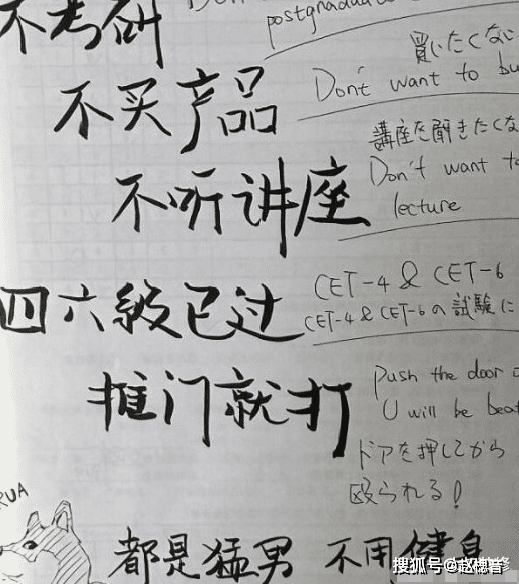 不考研
Don
postgradua
買いたくない
不买产品
Don't want to bu
講座を聞きたくな
不听讲座
Don't want to
lecture
CET-4 & CET-6
四六級已过
CET-4 & CET-6の試験に
推门就打
push the door
U will be beat
ドアを押してから
殴られる!
RUA
都是猛男 不用健身
搜狐号@赵